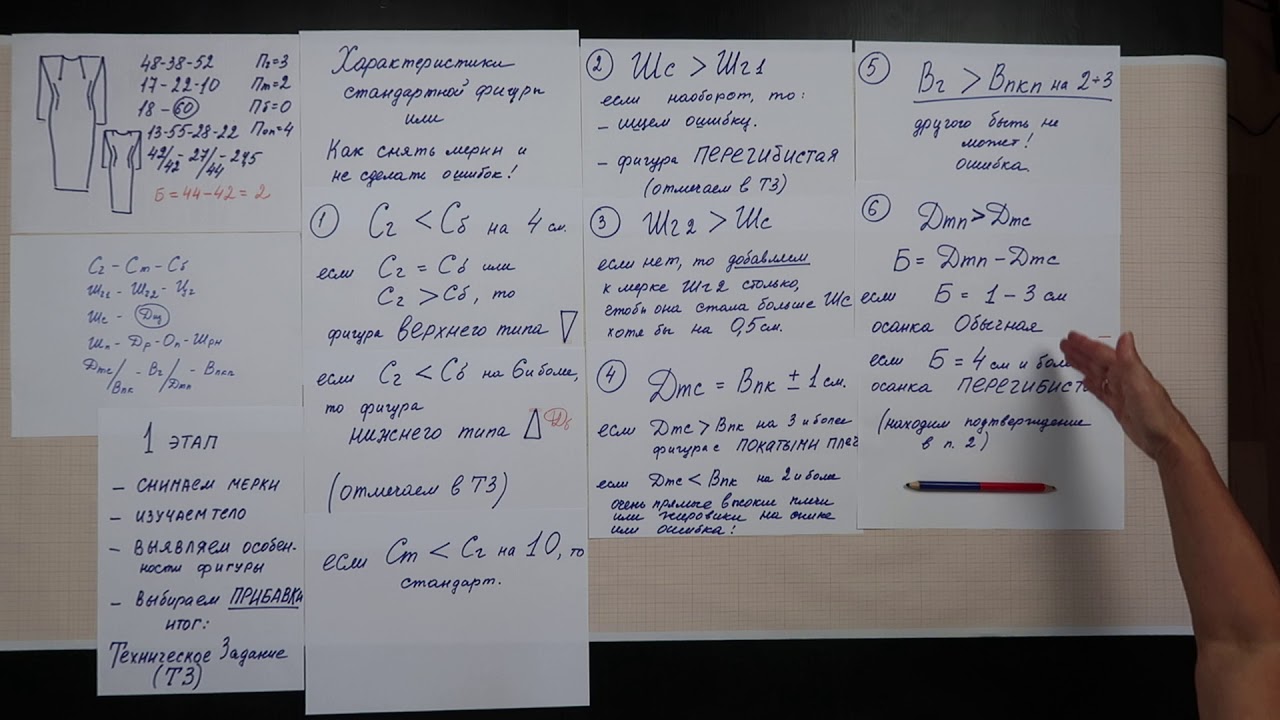 48-38-52 Пг=3
17-22-10 Пт=2
18-60 Пб=0
13-55-28-22 Поп=4
42/42 - 27/44 - 27,5
Б=44-42=2
Сг - Ст - Сб
Шг1 - Шг2 - Цг
Шс - Ди
Шп - Др - Оп - Шрн
Дтс/Впк - Вг/Дтп - Впкп
1 ЭТАП
- СНИМАЕМ МЕРКИ
- ИЗУЧАЕМ ТЕЛО
- ВЫЯВЛЯЕМ ОСОБЕН-
НОСТИ ФИГУРЫ
- Выбираем ПРИБАВКИ
ИТОГ:
Техническое Задание
(ТЗ)
Характеристики
стандартной фигуры
или
Как снять мерки и
не сделать ошибок!
1 Сг < Сб на 4 см.
если Сг = Сб или
Сг > Сб, то
фигура верхнего типа
если Сг < Сб на 6 и более,
то фигура
нижнего типа
(отмечаем в ТЗ)
если Ст < Сг на 10, то
стандарт.
2 Шс > Шг1
если наоборот, то:
- ищем ошибку.
- фигура ПЕРЕГИБИСТАЯ
(отмечаем в ТЗ)
3 Шг2 > Шс
если нет, то добавляем
к мерке Шг2 столько,
чтобы она стала больше Шс
хотя бы на 0,5 см.
4 Дтс = Впк ± 1 см.
если Дтс > Впк на 3 и более
фигура с ПОКАТЫМИ ПЛЕЧ
если Дтс < Впк на 2 и более
очень прямые высокие плечи
или жировики на спине
или ошибка!
5 Вг > Впкп на 2÷3
другого быть не
может!
ошибка.
6 Дтп > Дтс
Б = Дтп - Дтс
если Б = 1 - 3 см
осанка Обычная
если Б = 4 см и боле
осанка ПЕРЕГИБИСТ
(находим подтверждение
в п. 2)